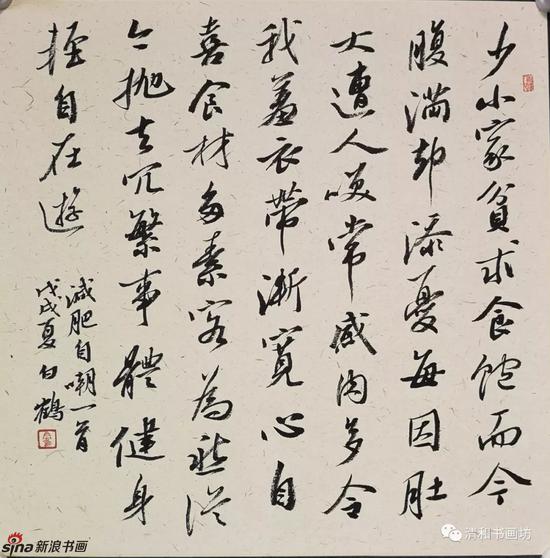 少小家貧求食飽而今
腹滿卻添憂每因肚
大遭人咲常感肉多令
我羞衣帶漸寬心自
喜食材多素客為愁從
今拋去冗繁事體健身
輕自在遊
減肥自嘲一首
戊戌夏白鶴
sina 新浪书画
清和书画坊